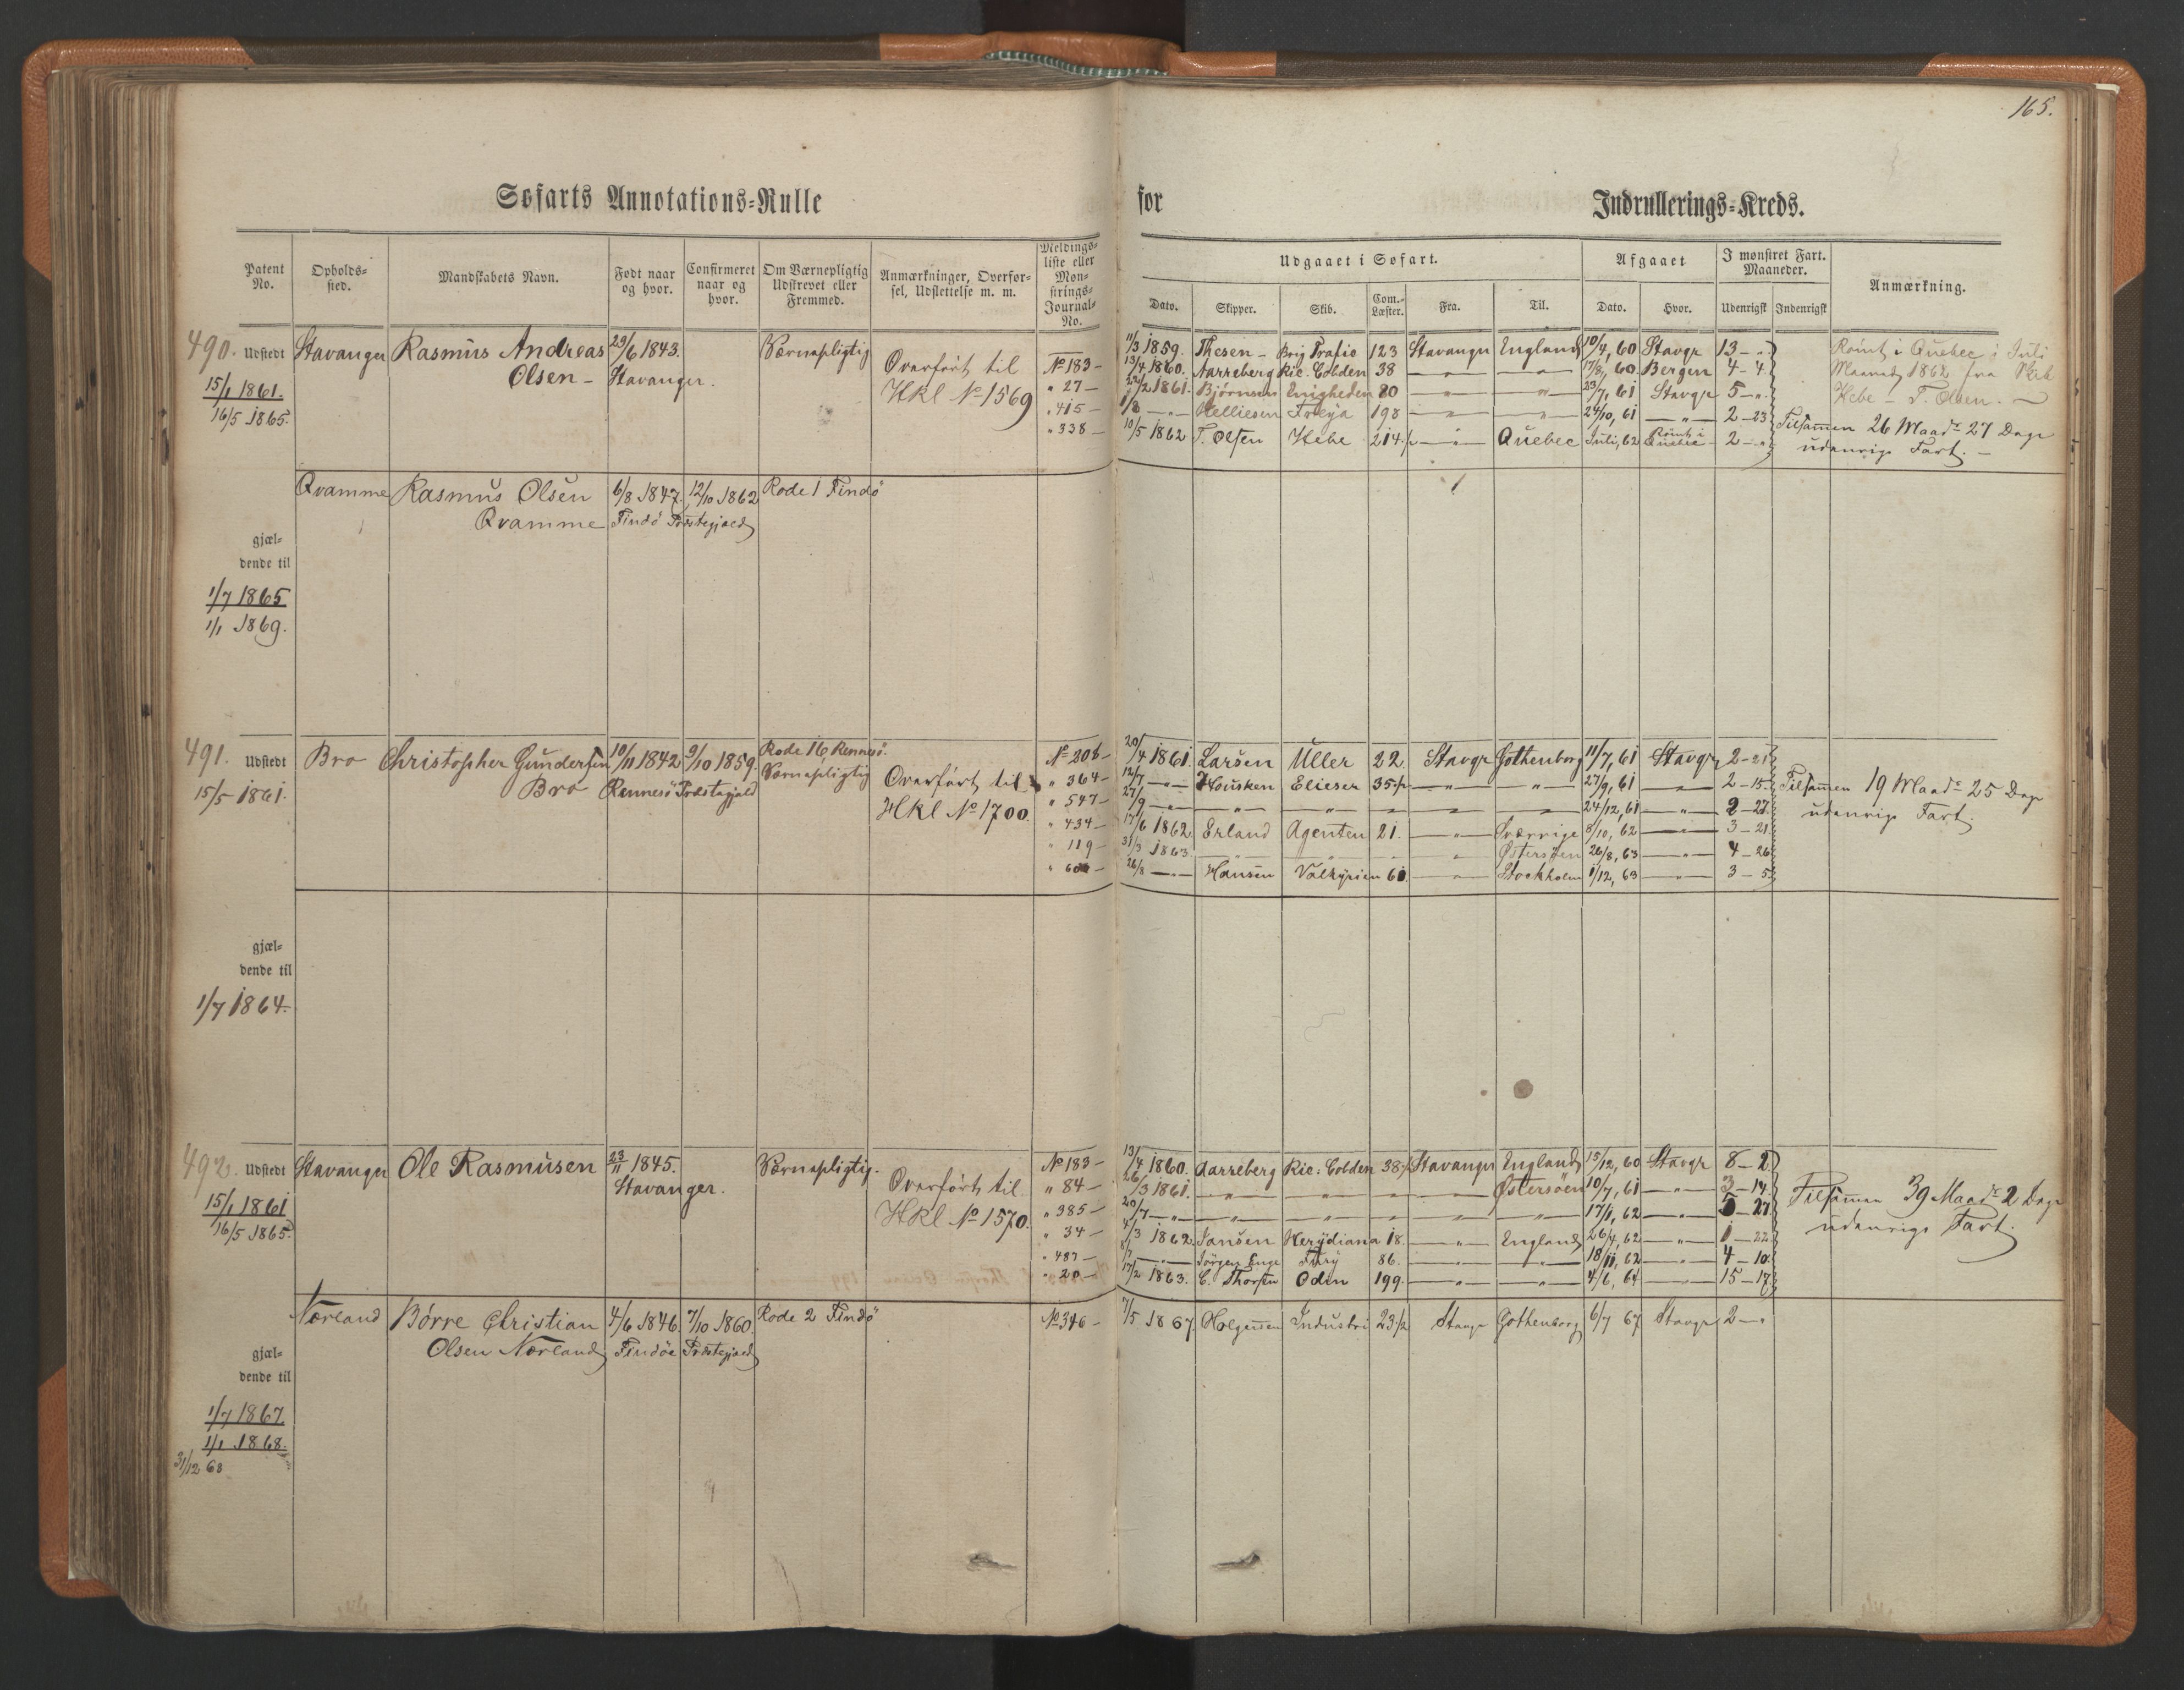 165.
Søfarts Annotations-Rulle for Indrullerings-Kreds.
Patent No.
Opholds-sted.
Mandskabets Navn.
Født naar og hvor.
Confirmeret naar og hvor.
Om Værnepligtig Udskrevet eller Fremmed.
Anmærkninger, Overfør-sel, Udslettelse m. m.
Meldings-liste eller Mønstrings-Journal-No.
Udgaaet i Søfart.
Afgaaet
I mønstret Fart. Maaneder.
Anmærkning.
Dato.
Skipper.
Skib.
Com.-Læster.
Fra.
Til.
Dato.
Hvor.
Udenrigsk
Indenrigsk
490. Udstedt
15/1 1861.
16/5 1865.
Stavanger
Rasmus Andreas
Olsen –
29/6 1843.
Stavanger.
Værnepligtig
Overført til
Hkl No 1569
No 183 –
" 27 –
" 415 –
" 338 –
11/3 1859. Thesen – Brig Trafic 123 Stavanger England 10/4, 60 Stavgr 13 – "
13/4 1860. Aarreberg Ric. Cobden 38 — " — — " — 17/8, 60 Bergen 4 – 4
22/2 1861. Bjørnsen Enigheden 80 — " — — " — 23/7, 61 Stavgr 5 – "
1/8 — " — Helliesen Freya 198 — " — — " — 24/10, 61 — " — 2 – 23
10/5 1862 T. Olsen Hebe 214 — " — Quebec Juli, 62 Rømt i Quebec 2 – "
Rømt i Quebec i Juli
Maaned 1862 fra Skib
Hebe – T. Olsen. –
Tilsamen 26 Maadr 27 Dage
udenrigs Fart. –
Qvamme
Rasmus Olsen
Qvamme
6/8 1847.
12/10 1862
Rode 1 Findö
Findö Præstegjæld
gjæl-
dende til
1/7 1865
1/1 1869.
491. Udstedt
15/5 1861.
Bro
Christopher Gundersen
Bro
10/11 1842
9/10 1859.
Rennesö Præstegjæld
Rode 16 Rennesö.
Værnepligtig
Overført til
Hkl No 1700.
No 208 –
" 364 –
" 547 –
" 434 –
" 119 –
20/4 1861. Larsen Uller 22. Stavgr Gothenborg 11/7, 61 Stavgr 2 – 21
12/7 — " — Housken Elieser 35 1/2 — " — — " — 27/9, 61 — " — 2 – 15
27/9 — " — — " — — " — — " — — " — — " — 24/12, 61 — " — 2 – 27
17/6 1862 Erland Agenten 21. — " — Sverrige 8/10, 62 — " — 3 – 21
31/3 1863. — " — — " — — " — — " — Østersøen 26/8, 63 — " — 4 – 26
26/8 — " — Hansen Valkyrien 60. — " — Stockholm 1/12, 63 — " — 3 – 5
Tilsamen 19 Maadr 25 Dage
udenrigs Fart.
gjæl-
dende til
1/7 1864.
492. Udstedt
15/1 1861
16/5 1865.
Stavanger
Ole Rasmusen
23/11 1845.
Stavanger.
Værnepligtig.
Overført til
Hkl No 1570.
No 183 –
" 84 –
" 385 –
" 34 –
" 487 –
" 20 –
13/4 1860. Aarreberg Ric. Cobden 38 Stavanger England 15/12, 60 Stavgr 8 – 2
26/3 1861. — " — — " — — " — — " — Østersøen 10/7, 61 — " — 3 – 14
20/7 — " — — " — — " — — " — — " — — " — 17/1, 62 — " — 5 – 27
4/3 1862 Jansen Herydiana 18. — " — England 26/4, 62 — " — 1 – 22
— " — Jörgen Enge Fury 86. — " — — " — 18/11, 62 — " — 4 – 10
17/2 1863. C. Thorsen Odin 199. — " — — " — 4/6, 64 — " — 15 – 17
Tilsamen 39 Maadr 2 Dage
udenrigs Fart.
Nærland
Børre Christian
Olsen Nærland
4/6 1846
7/10 1860.
Findöe Præstegjæld
Rode 2 Findö
No 346 –
7/5 1867. Helgesen Industri 23 1/2 Stavgr Gothenborg 6/7 67 Stavgr 2 – "
gjæl-
dende til
1/7 1867.
1/1 1868.
31/12 68